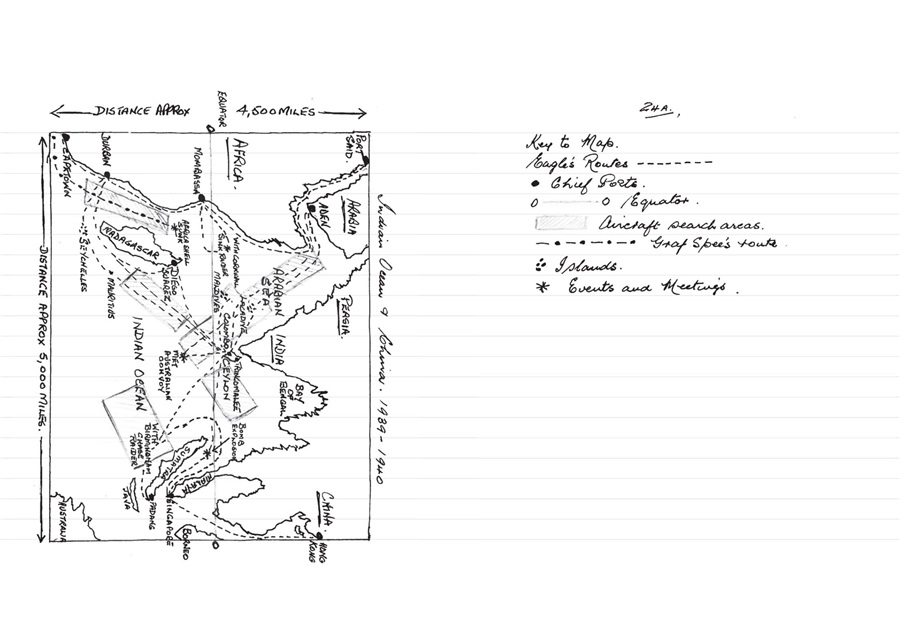 24A.
Key to Map.
Eagle's Routes
Chief Ports.
Equator.
Aircraft search areas.
Graf Spee's route
Islands.
Events and Meetings.
Indian Ocean & China. 1939-1940
DISTANCE APPROX 4,500 MILES
DISTANCE APPROX 5,000 MILES.
EQUATOR
AFRICA.
PORT SAID.
ARABIA
ADEN
PERSIA.
CAPETOWN
DURBAN
MOMBASSA
MADAGASCAR
AFRICA SHELL SUNK
DIEGO SUAREZ
SEYCHELLES
MAURITIUS
ARABIAN SEA.
MALDIVES
LACADIVE
INDIA
COLOMBO
CEYLON
TRINCOMALEE
BAY OF BENGAL
INDIAN OCEAN
MET AUSTRALIAN CONVOY
BOMB EXPLOSION
WITH BIRMINGHAM CHASE RAIDER
SUMATRA
MALAYA
SINGAPORE
PADANG
JAVA
BORNEO
AUSTRALIA
CHINA.
HONG KONG